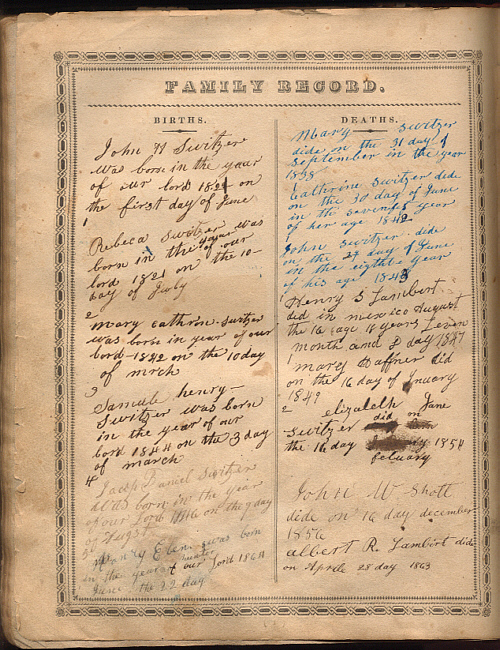 FAMILY RECORD.
BIRTHS.
John H Switzer
was born in the year
of our lord 1821 on
the first day of June
1
Rebeca Switzer was
born in the year of our
lord 1821 on the 10
day of July
2
mary Cathrin Switzer
was born in year of our
lord 1842 on the 10 day
of mrch
3
Samule henry
Switzer was born
in the year of our
lord 1844 on the 3 day
of march
4
Daniel Switzer
was born in the year
of our Lord 1846 on the day
of Augst
Elen was born
in the year of our lord 1864
June the 22 day
DEATHS.
Mary Switzer
dide on the 31 day of
September in the year
1838
1
Cathrine Switzer dide
on the 30 day of June
in the sevents year
of her age 1842
1
John Switzer dide
on the 27 day of June
in the eighth year
of his age 1843
Henry S Lambert
did in mexico August
the 16 age 18 years
month and 8 day 1847
1
mary Haffner did
on the 16 day of
1849
2
elizabeth Jane
Switzer did on
the 16 day 1854
febuary
John W Shott
dide on 16 day december
1856
albert R. Lambirt dide
on Aprile 28 day 1863